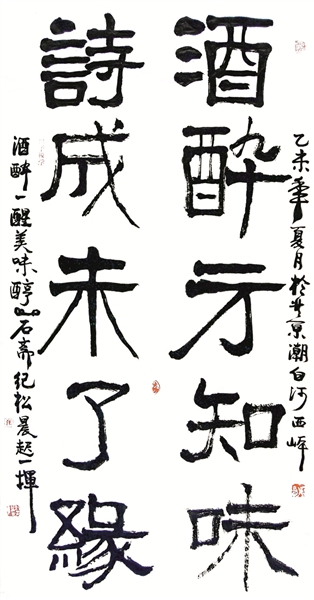 乙未年夏月於北京潮白河西岸
酒酔方知味
詩成未了緣
酒醉一醒美味醇山石齋紀松晨起一揮